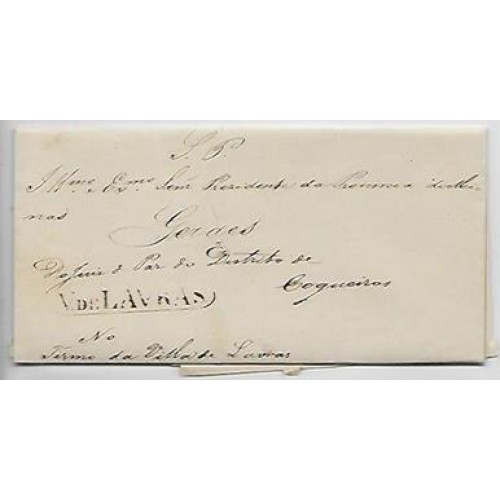 S. P.
Illmo. Exmo. Senr. Prezidente da Provincia de Mi-
nas
Geraes
Do Juis de Paz do Districto de
Coqueiros
V. DE LAVRAS
No
Termo da Villa de Lavras